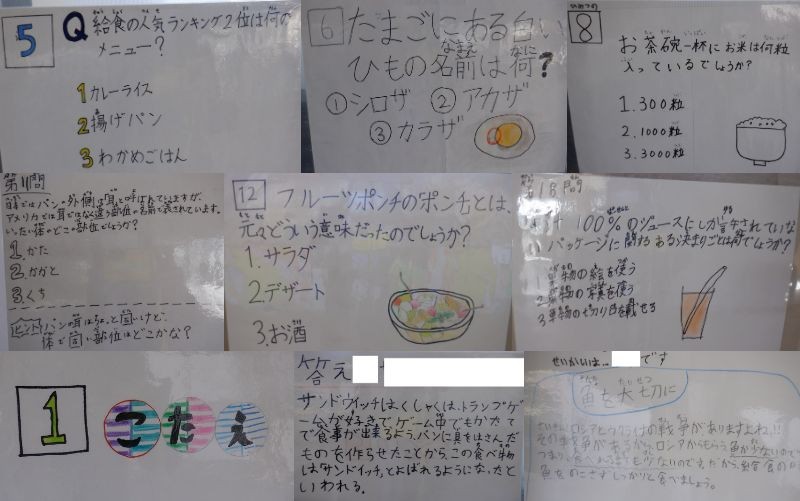 5
Q 給食の人気ランキング2位は何の
メニュー?
1 カレーライス
2 揚げパン
3 わかめごはん
6
たまごにある白い
ひもの名前は何?
なまえ なに
① シロザ ② アカザ
③ カラザ
8
お茶碗一杯にお米は何粒
入っているでしょうか?
1. 300粒
2. 1000粒
3. 3000粒
第11問
日本ではパンの外側は耳と呼ばれていますが、
アメリカでは耳ではなく違う部位の名前で表されています。
いったい体のどこの部位でしょうか?
1. かた
2. かかと
3. くち
ヒント パンの耳はちょっと固いけど、
体で固い部位はどこかな?
12
フルーツポンチの「ポンチ」とは、
元々どういう意味だったのでしょうか?
1. サラダ
2. デザート
3. お酒
100%のジュースにしか
パッケージに関するある決まりごとは何でしょうか?
1 果物の絵を使う
2 果物の写真を使う
3 果物の切り口を載せる
1
こたえ
答え
サンドウィッチはくしゃくは、トランプゲ
ームが好きでゲーム中でもかたて
で食事が出来るよう、パンに具をはさんだ
ものを作らせたことから、この食べ物
は「サンドイッチ」とよばれるようになったと
いわれる。
せいかいは… です
魚を大切に
ロシアとウクライナの戦争がありますよね!!
その戦争があるから、ロシアからもらう魚が少ないので
魚をのこさずしっかりと食べましょう。